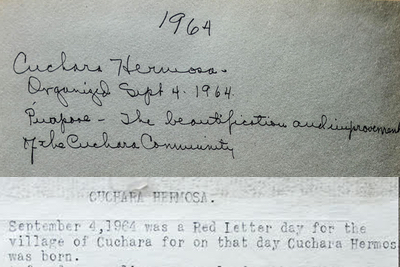 1964
Cuchara Hermosa.
Organized Sept 4. 1964.
Purpose - The beautification and improvement
of the Cuchara Community
CUCHARA HERMOSA.
September 4,1964 was a Red Letter day for the
village of Cuchara for on that day Cuchara Hermos
was born.